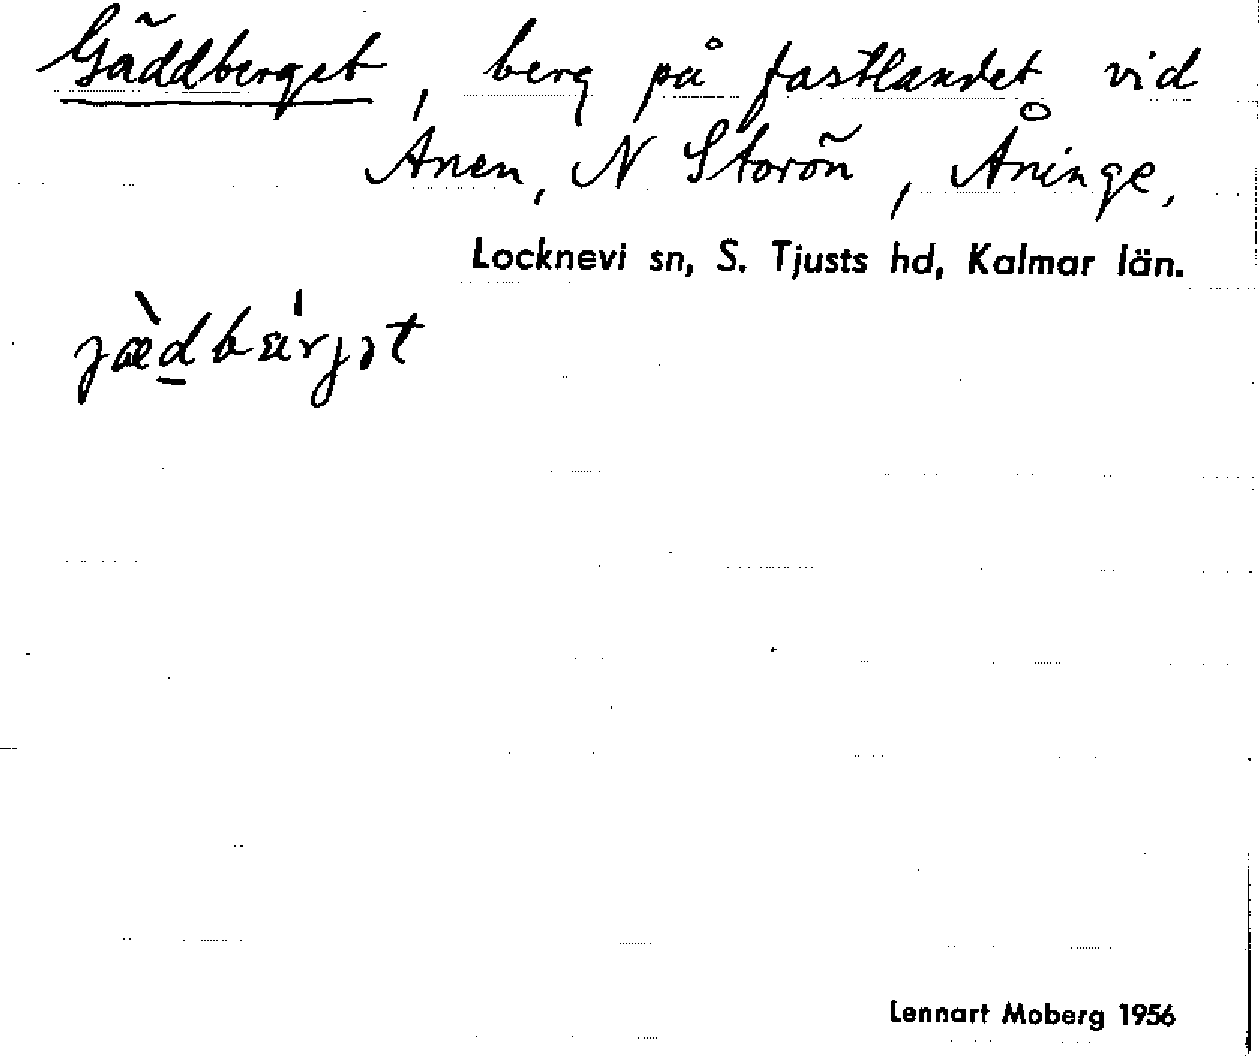 Gäddberget, berg på fastlandet vid
Anen, N Storön, Åninge,
Locknevi sn, S. Tjusts hd, Kalmar län.
Lennart Moberg 1956